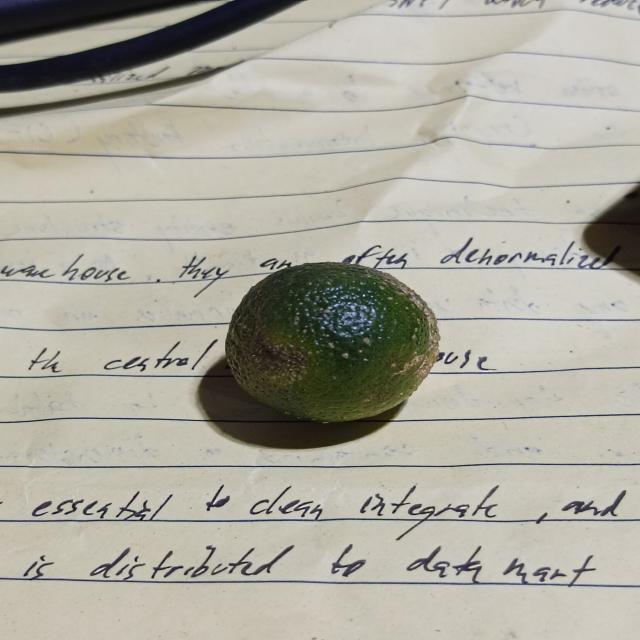 warehouse. they are often denormalized
the central
essential to clean integrate, and
is distributed to data mart